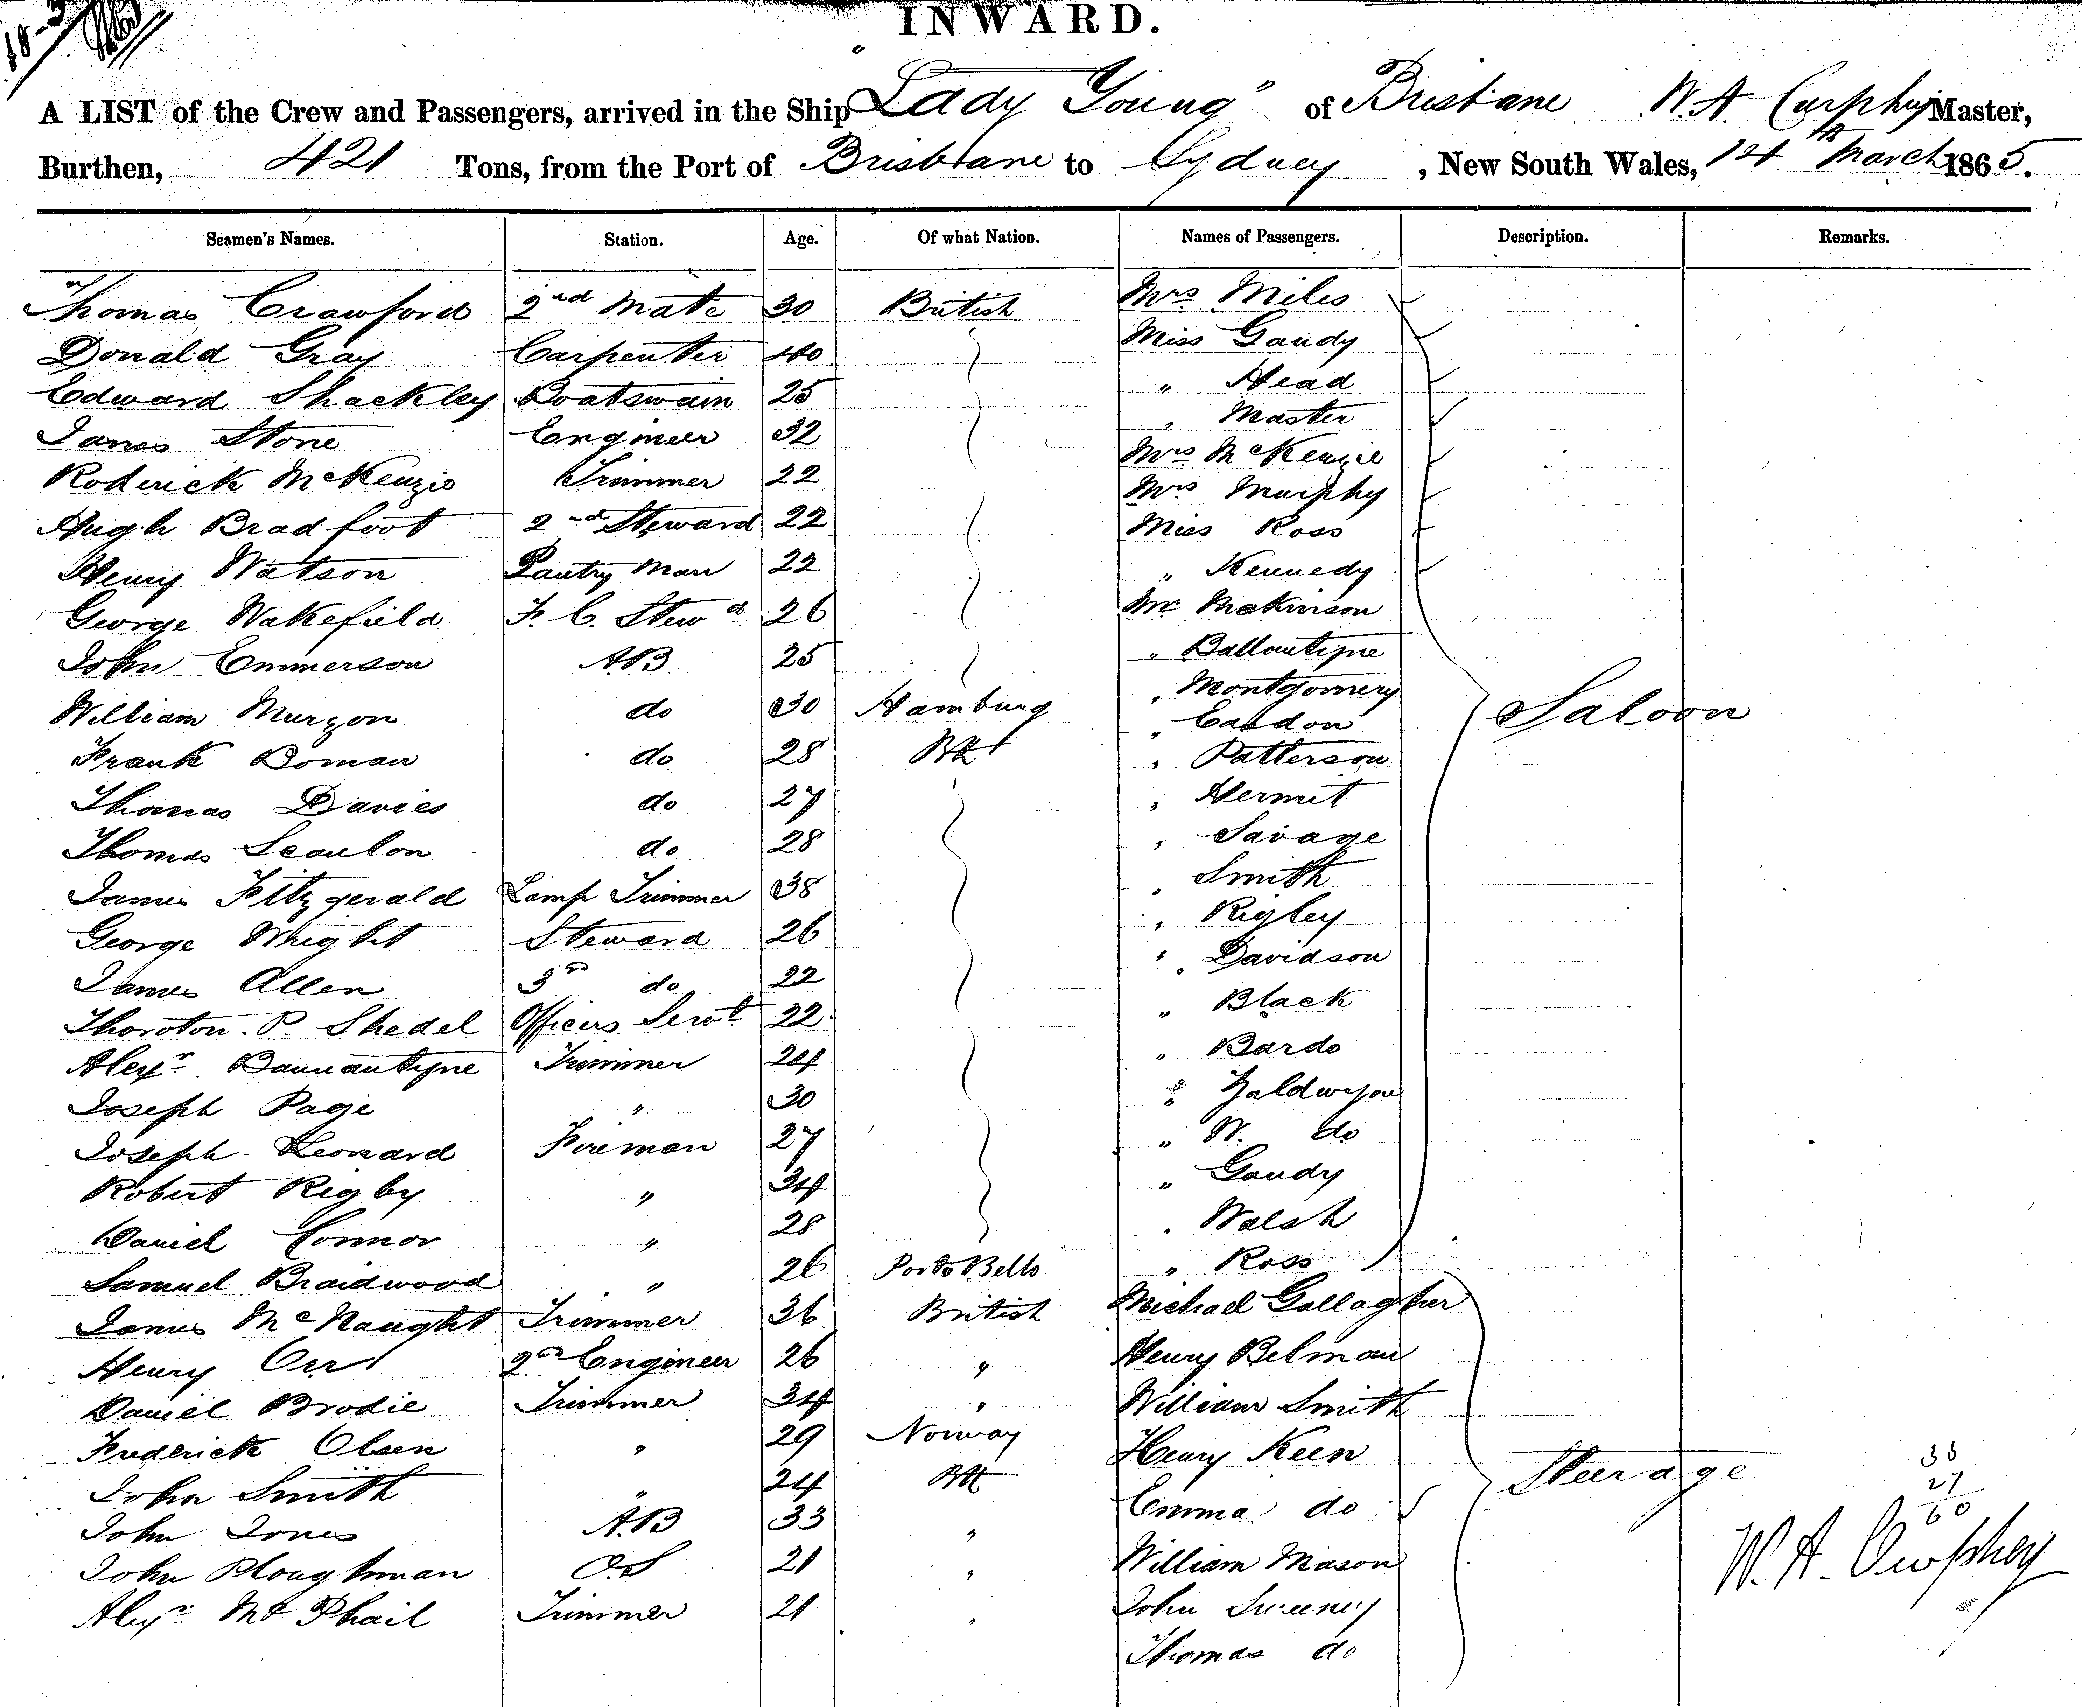 INWARD.
A LIST of the Crew and Passengers, arrived in the Ship "Lady Young" of Brisbane W. A. Curphey Master,
Burthen, 421 Tons, from the Port of Brisbane to Sydney, New South Wales, 14th March 1865.
Seamen's Names. Station. Age. Of what Nation. Names of Passengers. Description. Remarks.
Thomas Crawford 2nd Mate 30 British Mrs Miles
Donald Gray Carpenter 40 Miss Gaudy
Edward Shackley Boatswain 25 " Head
James Stone Engineer 32 " Master
Roderick McKenzie Trimmer 22 Mrs McKenzie
Hugh Bradfoot 2nd Steward 22 Mrs Murphy
Henry Watson Pantry Man 22 Miss Ross
George Wakefield F. C. Stewd 26 " Kennedy
John Emmerson AB 25 Mr Mekinson
William Murzon do 30 Hamburg " Ballantyne
Frank Doman do 28 Bt " Montgomery
Thomas Davies do 27 " Eardon Saloon
Thomas Scanlon do 28 " Patterson
James Fitzgerald Lamp Trimmer 38 " Hermit
George Wright Steward 26 " Savage
James Allen 3rd do 22 " Smith
Thoroton P. Shedel Officers Servt 22 " Rigley
Alexr Bannantyne Trimmer 24 " Davidson
Joseph Page " 30 " Black
Joseph Leonard Fireman 27 " Bardo
Robert Rigby " 34 " Zaldwyon
Daniel Connor " 28 " W. do
Samuel Braidwood " 26 Porto Bello " Gaudy
James McNaught Trimmer 36 British " Walsh
Henry Orr 2nd Engineer 26 " " Ross
Daniel Brodie Trimmer 34 " Michael Gallagher
Frederick Olsen " 29 Norway Henry Belman
John Smith " 24 Bt William Smith
John Jones A.B 33 " Henry Keen Steerage
John Ploughman O.S 21 " Emma do
Alexr McPhail Trimmer 21 " William Mason
John Sweeney
Thomas do
33
27
60
W. A. Curphey